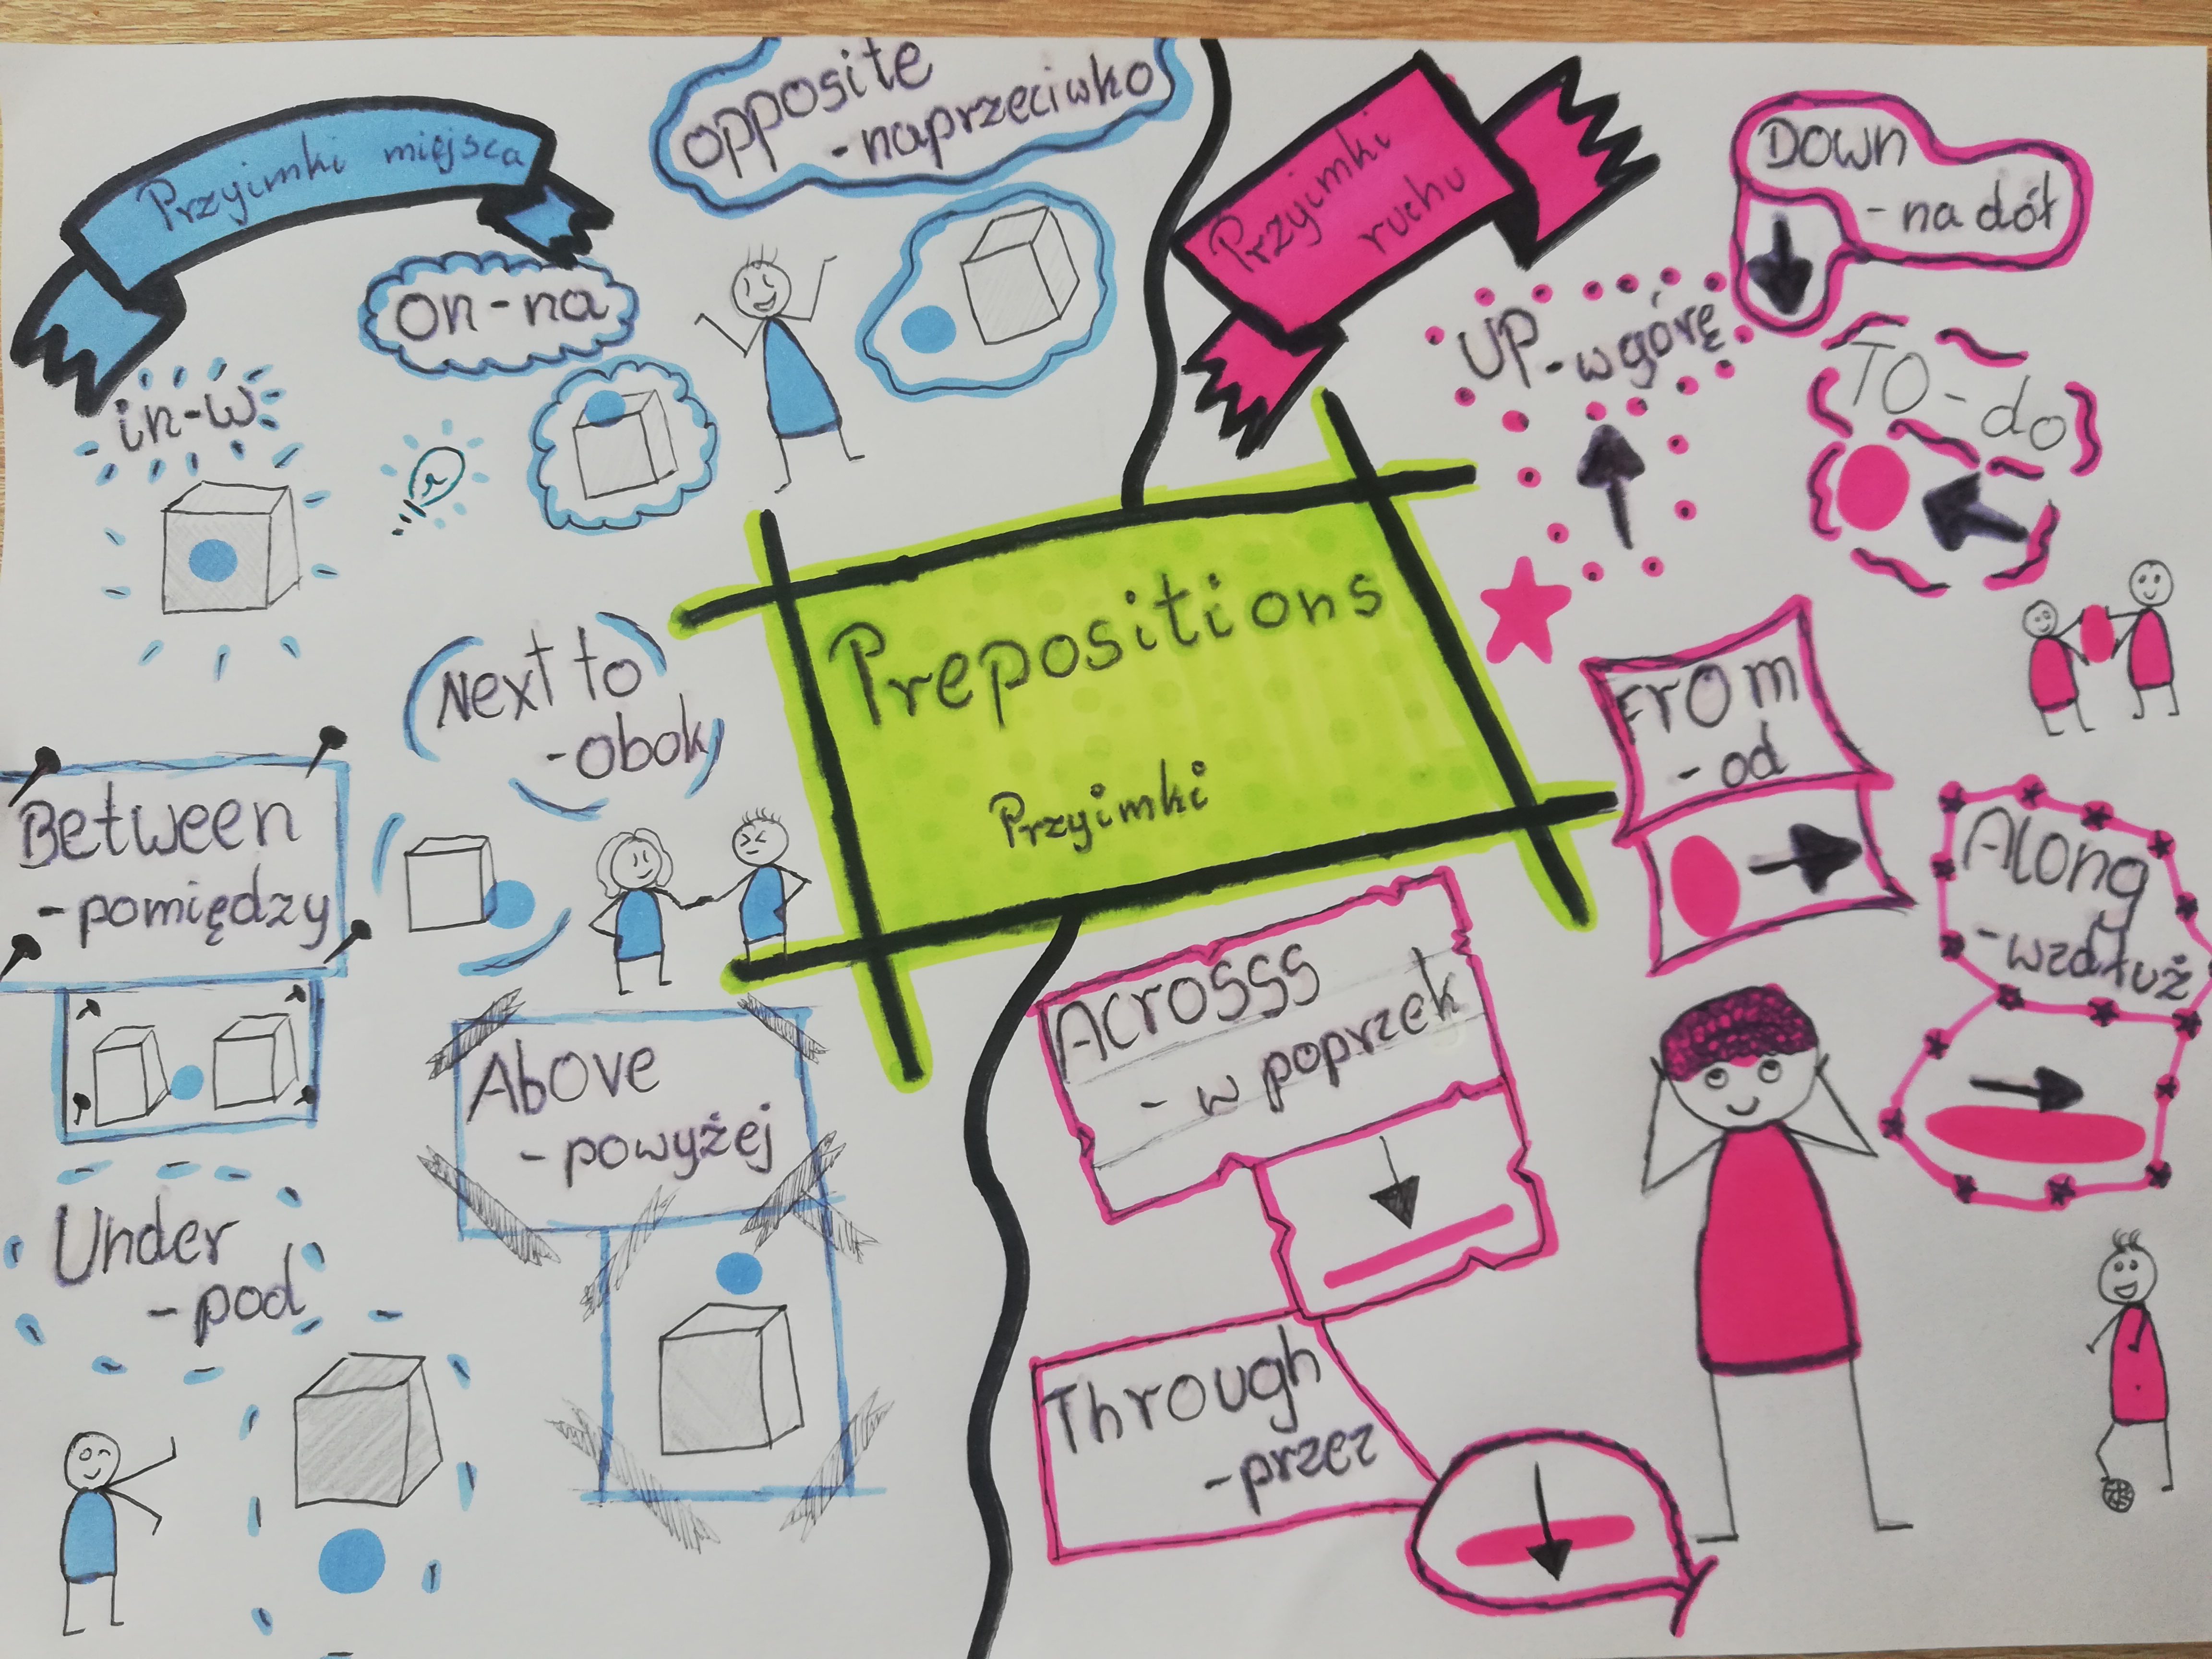 Przyimki miejsca
opposite
-naprzeciwko
on-na
in-w
Next to
-obok
Between
-pomiędzy
Above
-powyżej
Under
-pod
Prepositions
Przyimki
Przyimki
ruchu
DOWN
-na dół
UP-w górę
TO-do
From
-od
Along
-wzdłuż
Acrosss
-w poprzek
Through
-przez